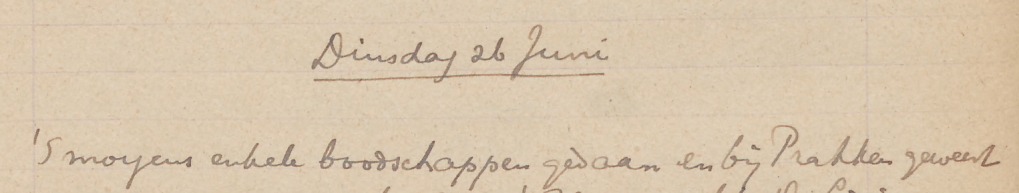 Dinsdag 26 Juni
's morgens enkele boodschappen gedaan en bij Prakken geweest